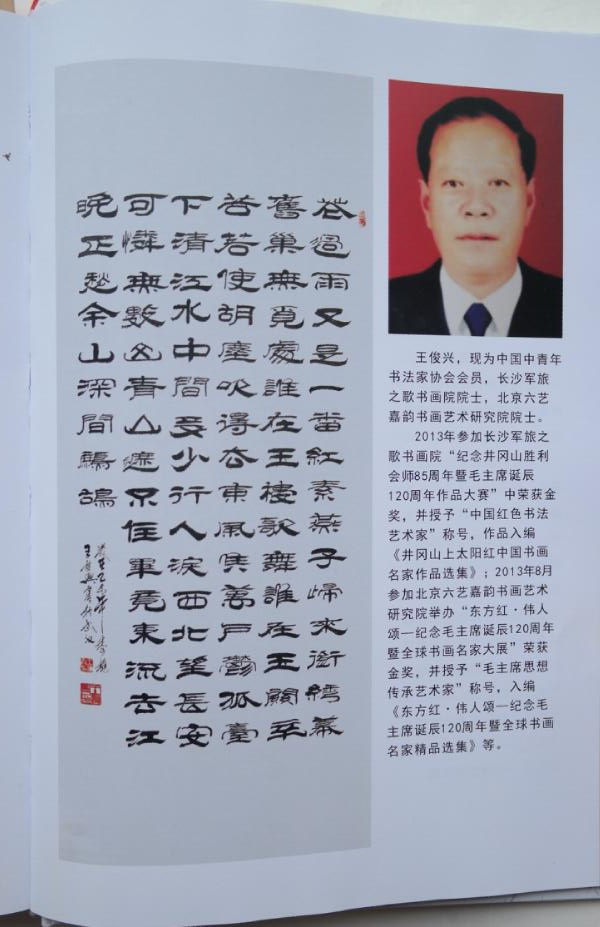 花過雨又是一番紅素燕子歸來銜繡幕
舊巢無覓處誰在玉樓歌舞誰在玉關辛
苦若使胡塵吹得去東風侯萬戶鬱孤臺
下清江水中間多少行人淚西北望長安
可憐無數山青山遮不住畢竟東流去江
晚正愁余山深聞鷓鴣
王俊兴，现为中国中青年
书法家协会会员，长沙军旅
之歌书画院院士，北京六艺
嘉韵书画艺术研究院院士。
2013年参加长沙军旅之
歌书画院“纪念井冈山胜利
会师85周年暨毛主席诞辰
120周年作品大赛”中荣获金
奖，并授予“中国红色书法
艺术家”称号，作品入编
《井冈山上太阳红中国书画
名家作品选集》；2013年8月
参加北京六艺嘉韵书画艺术
研究院举办“东方红·伟人
颂—纪念毛主席诞辰120周年
暨全球书画名家大展”荣获
金奖，并授予“毛主席思想
传承艺术家”称号，入编
《东方红·伟人颂—纪念毛
主席诞辰120周年暨全球书画
名家精品选集》等。